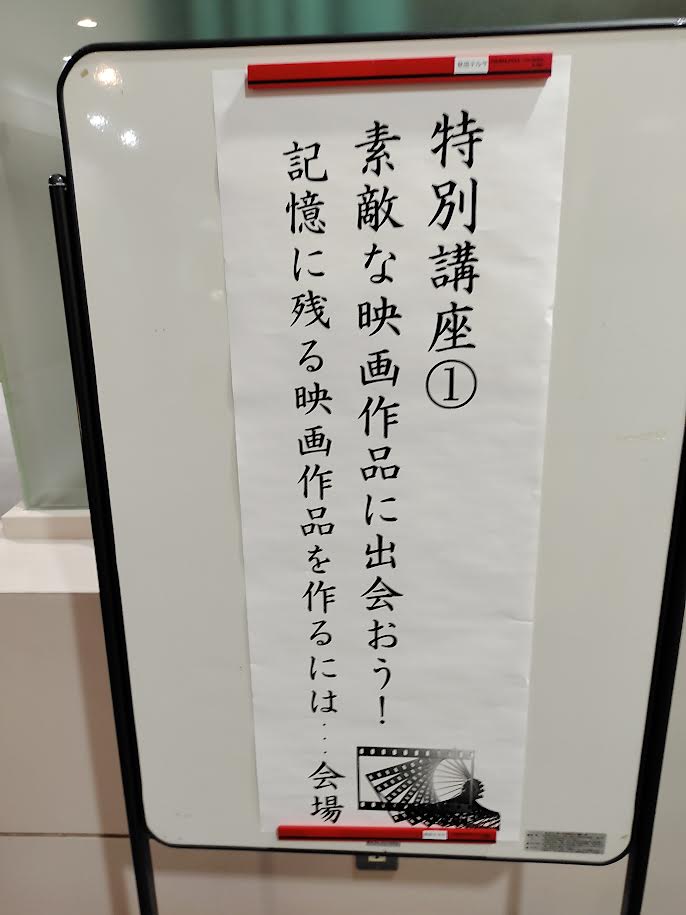 特別講座①
素敵な映画作品に出会おう！
記憶に残る映画作品を作るには…会場